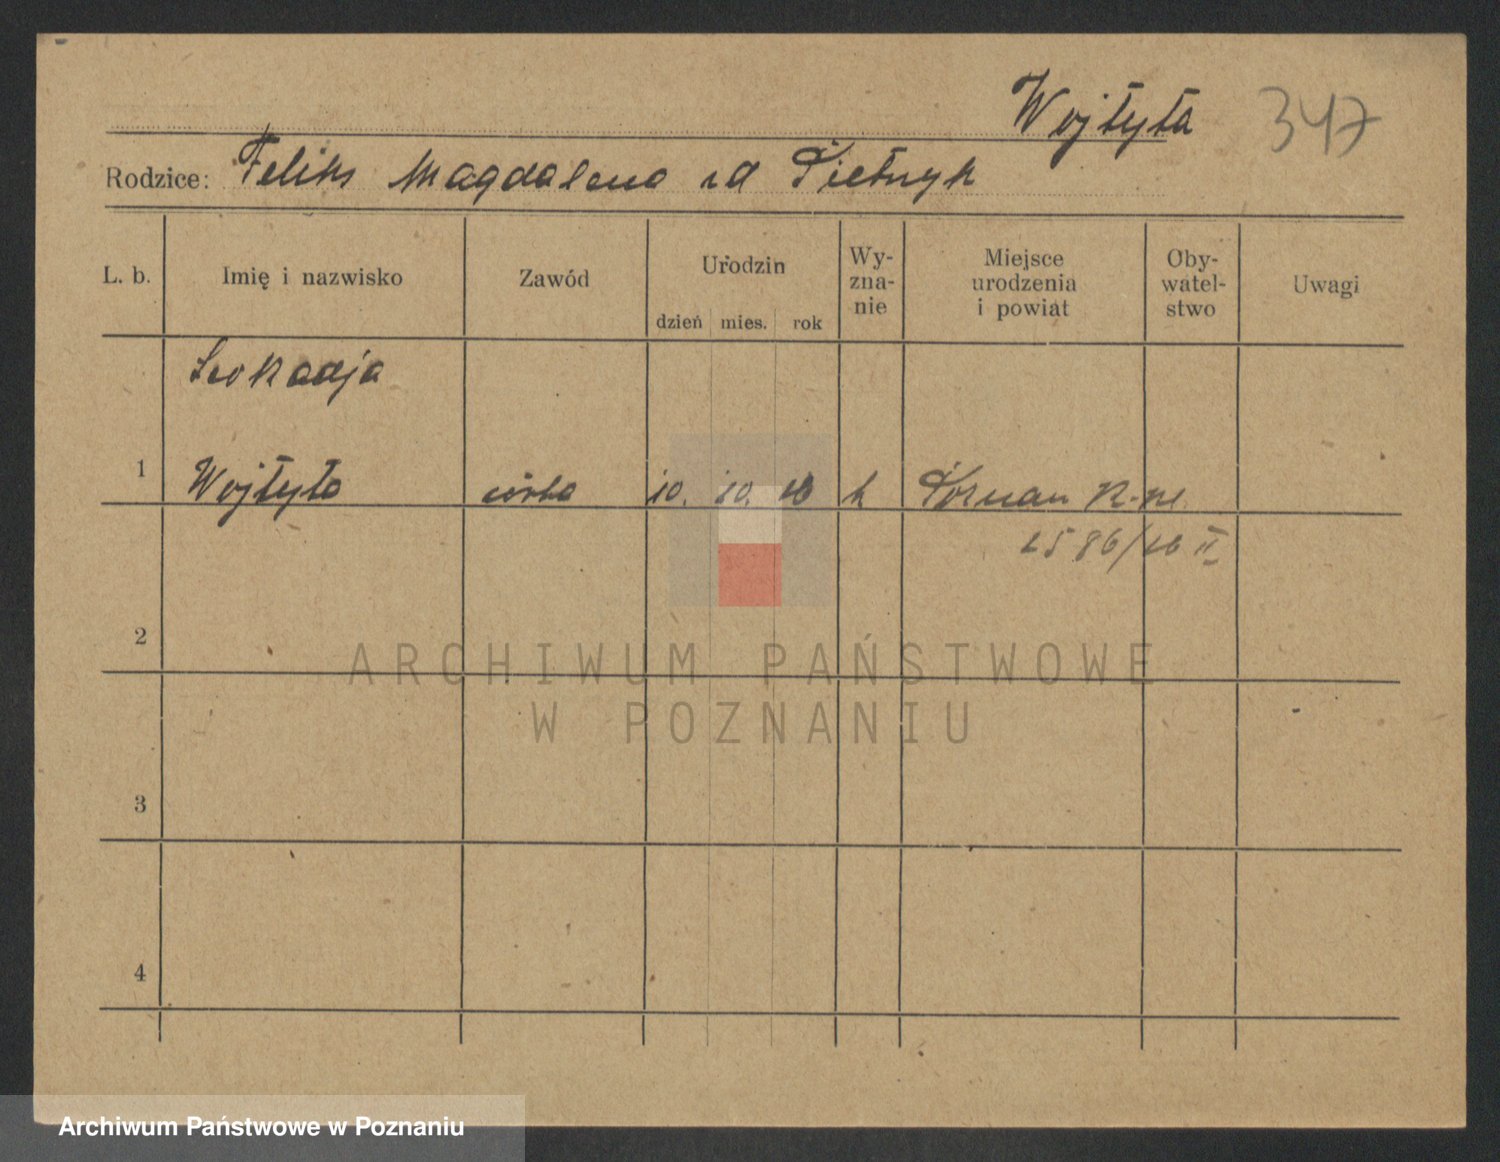 Wojtyła 347
Rodzice: Feliks Magdalena zd Pietrzyk
L. b. Imię i nazwisko Zawód Urodzin dzień mies. rok Wy-zna-nie Miejsce urodzenia i powiat Oby-watel-stwo Uwagi
Leokadja
1 Wojtyła córka 10. 10. k Poznań
2586/26 II
2
3
4
ARCHIWUM PAŃSTWOWE
W POZNANIU
Archiwum Państwowe w Poznaniu